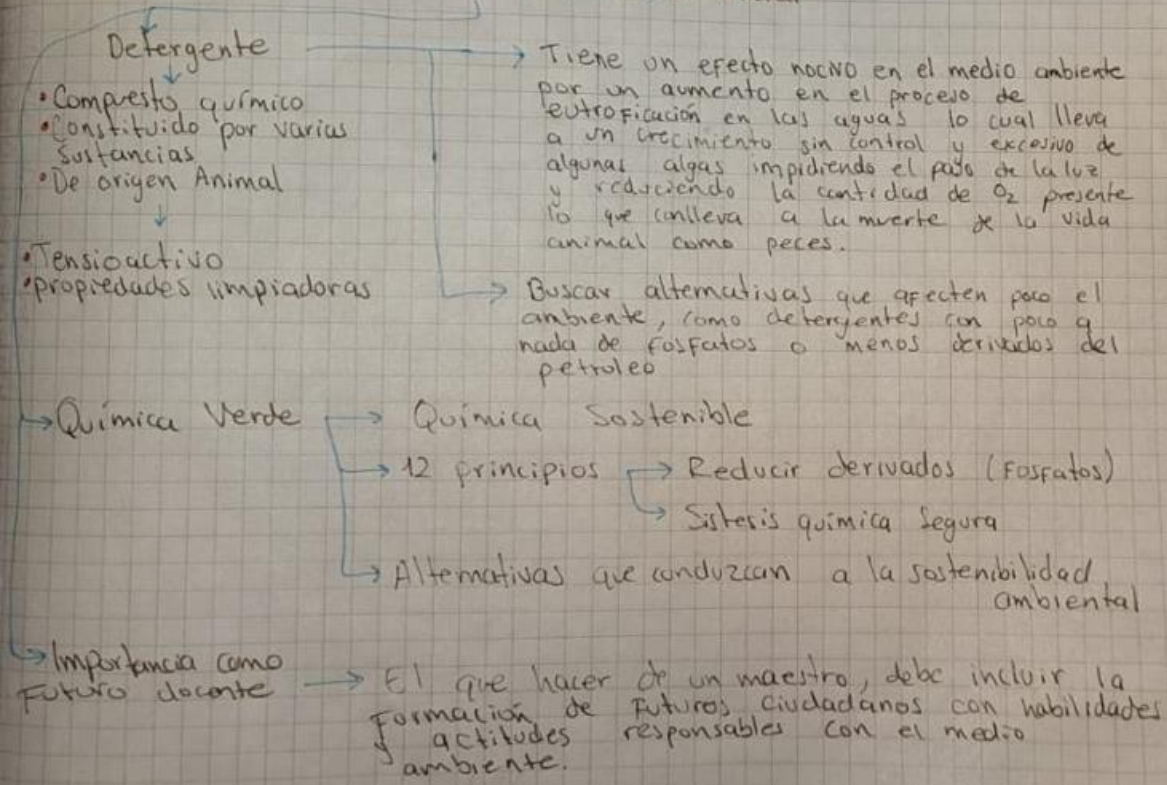 Detergente
• Compuesto químico
• Constituido por varias
sustancias
• De origen Animal
• Tensioactivo
• propiedades limpiadoras
Tiene un efecto nocivo en el medio ambiente
por un aumento en el proceso de
eutroficación en las aguas lo cual lleva
a un crecimiento sin control y excesivo de
algunas algas impidiendo el paso de la luz
y reduciendo la cantidad de O₂ presente
lo que conlleva a la muerte de la vida
animal como peces.
Buscar alternativas que afecten poco el
ambiente, como detergentes con poco a
nada de fosfatos o menos derivados del
petroleo
Química Verde
Química Sostenible
12 principios
Reducir derivados (fosfatos)
Sistesis química segura
Alternativas que conduzcan a la sostenibilidad
ambiental
Importancia como
Futuro docente
El que hacer de un maestro, debe incluir la
Formación de Futuros ciudadanos con habilidades
y actitudes responsables con el medio
ambiente.